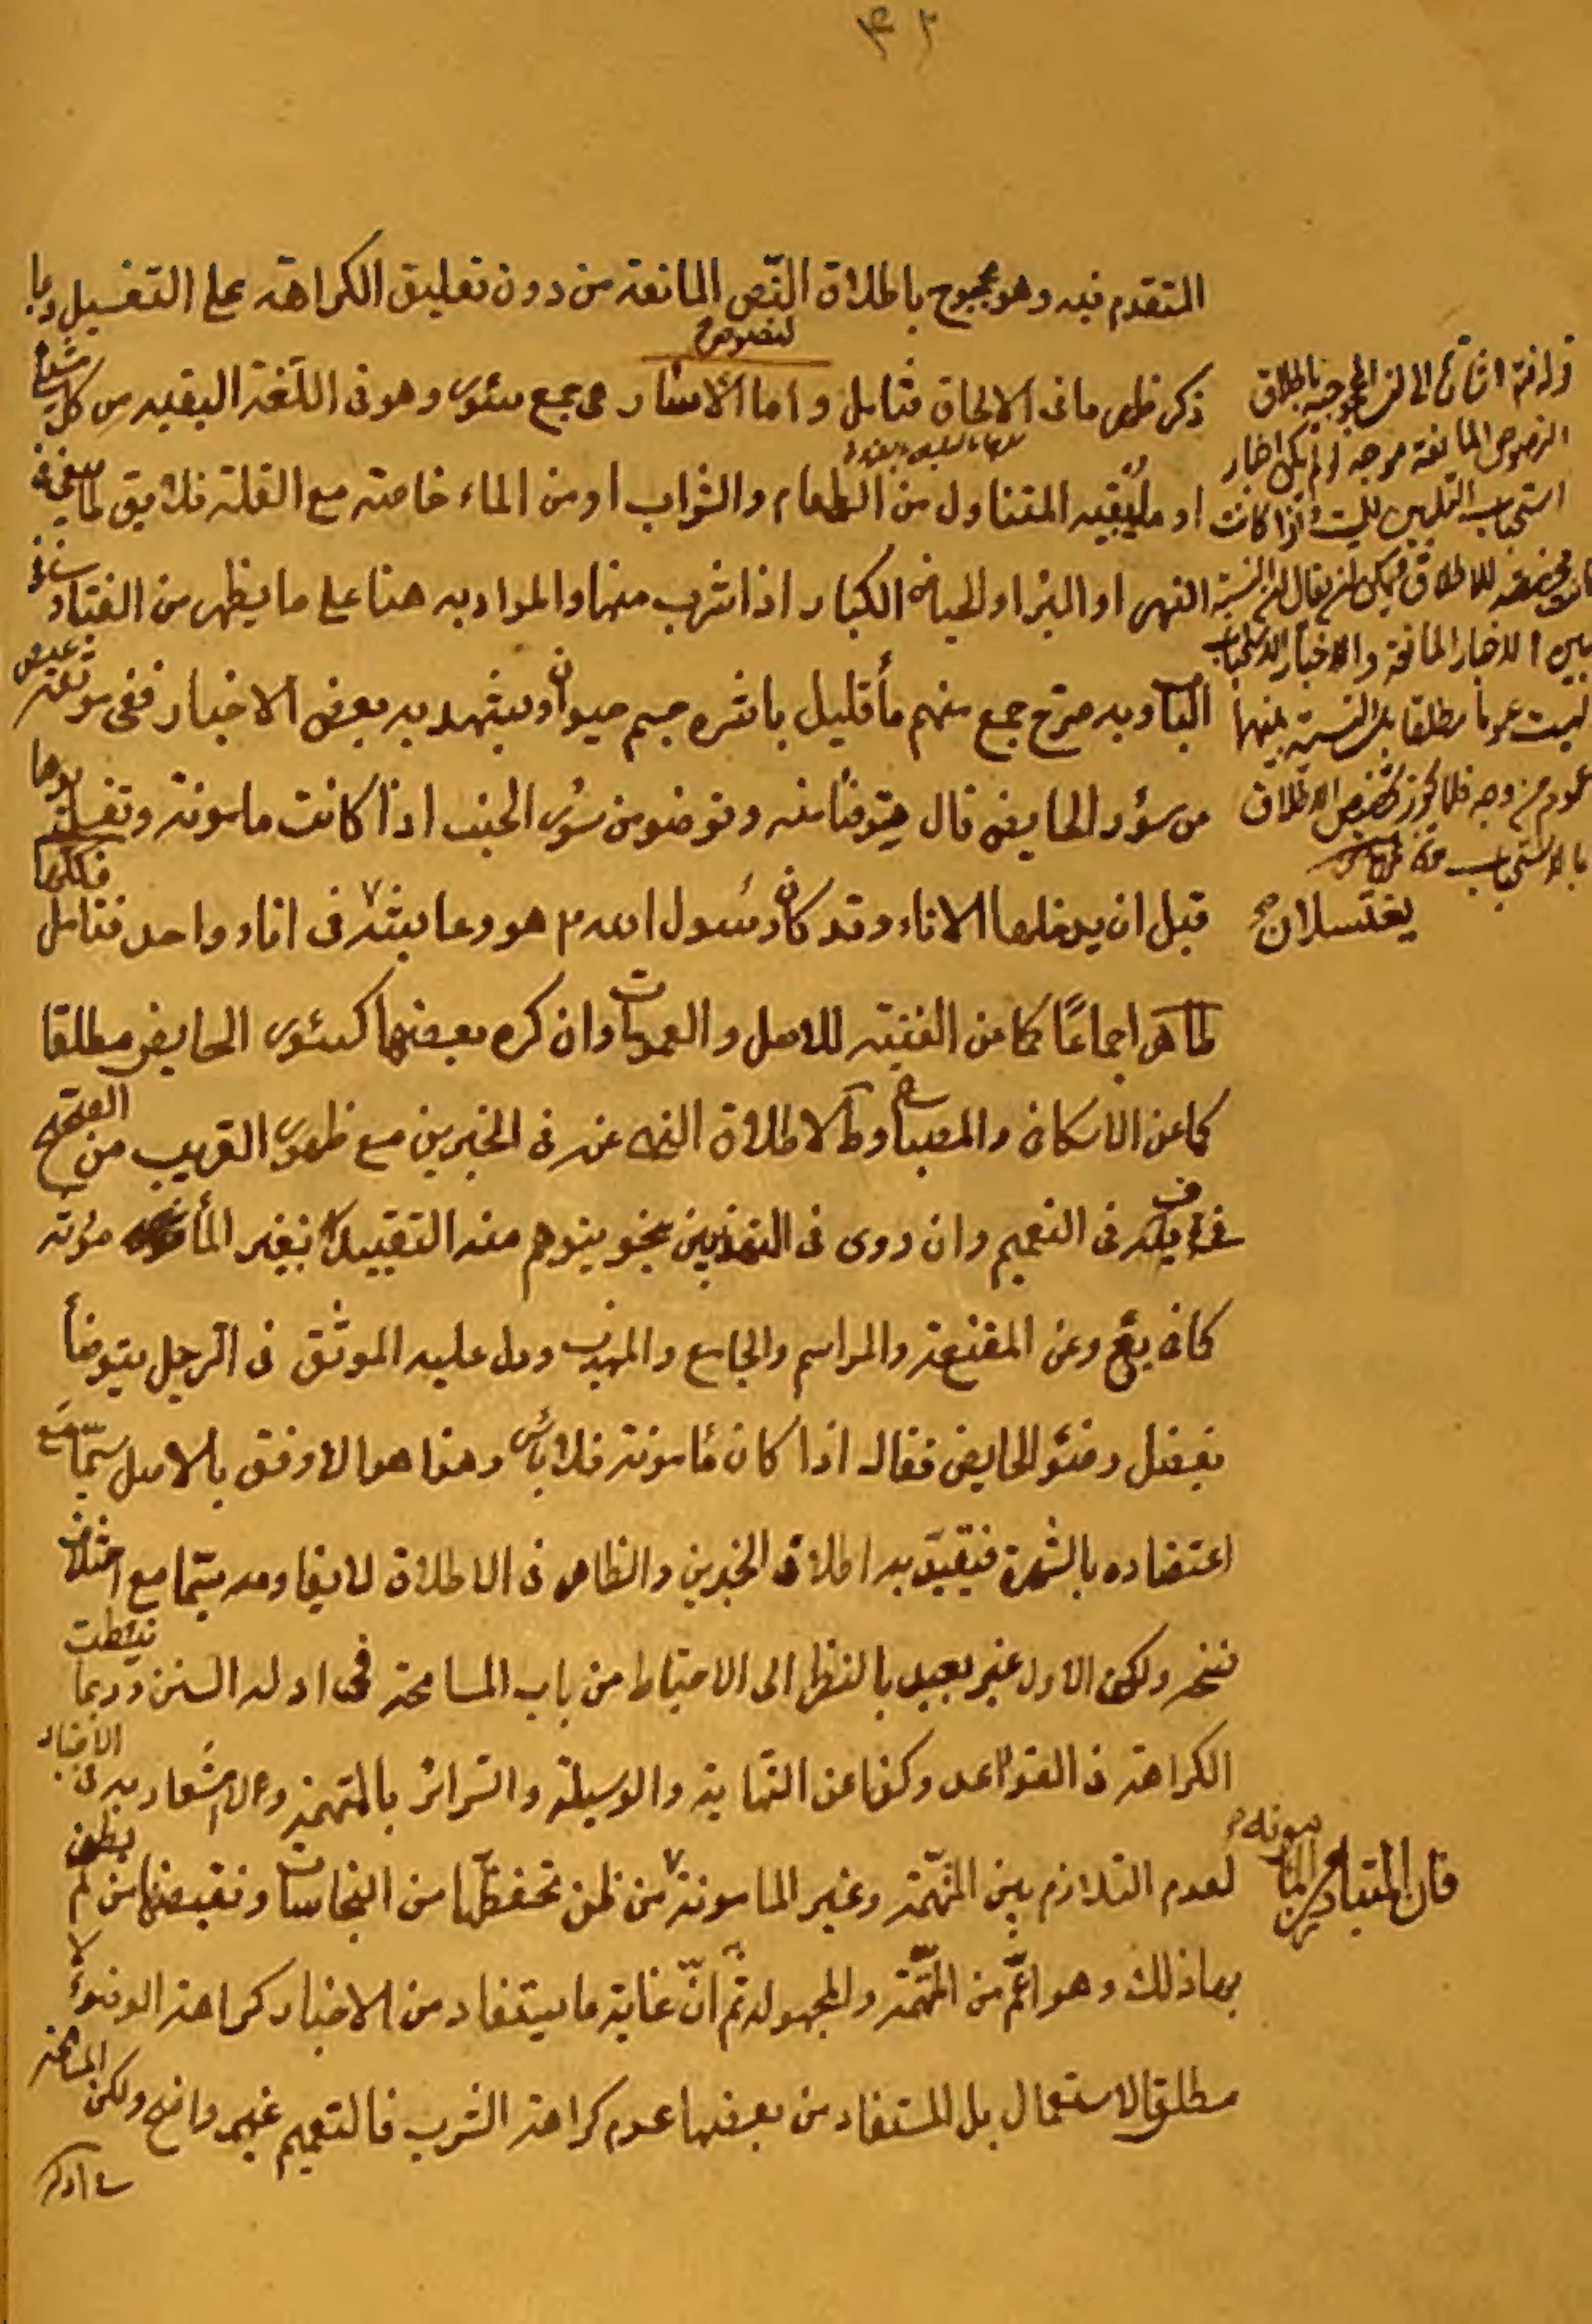 ٤٢
المتقدم فيه وهو محجوج باطلاق النّص المانعة من دون تعليق الكراهة على التغسيل وبما
لنصوص
ذكر ظهر ما فى الالحاق فتامل واما الاسٔار هى جمع سئور وهو فى اللّغة البقيه من كل شئ
او ما يُبقيه المتناول من الطعام والشراب او من الماء خاصة مع القلة فلا يق لما يبقى فى
النهر او البئر او الحياض الكبار اذا شرب منها والمراد به هنا على ما يظهر من الفتاوى
الباب وبه صرّح جمع منهم مأ قليل باشره جسم حيوان ويشهد به بعض الاخبار ففى موثقة عيص
من سؤر الحايض قال يتوضٔا منه وتوضٔو من سُور الجنب اذا كانت مامونة وتغسل يدها
قبل ان يدخلها الاناء وقد كان رسُول الله ص هو وعايشة فى اناء واحد فتامل فكلها
طاهر اجماعًا كما عن الغنيه للاصل والعمومات وان كره بعضها كسئور الحايض مطلقا
كما عن الاسكافى والمصباح وط لاطلاق النهى عنه فى الخبرين مع ظهور القريب من الصّريح
فى فى التعميم وان روى فى التهذيبين بنحو يتوهم منه التقييد بغير المأمونة
كما فى يع وعن المقنعة والمراسم والجامع والمهذب ودل عليه الموثق فى الرّجل يتوضأ
بفضل وضئو الحايض فقال اذا كان مٔامونة فلا باس وهذا هو الاوفق بالاصل سيّما مع
اعتضاده بالشهرة فيقيّد به اطلاق الخبرين والظاهر فى الاطلاق لا يقاومه سيّما مع اختلاف
نسخه ولكن الاول غير بعيد بالنظر الى الاحتياط من باب المسامحة فى ادله السنن وربما نيطت
الكراهة فى القواعد وكذا عن النّهاية والوسيلة والسرائر بالمتهمة ولا اشعار به فى الاخبار
لعدم التلازم بين المتّهمة وغير المامونة من ظن تحفظّها من النجاسات ونقيضها من لم يظن
بها ذلك وهو اعّم من المتّهمة والمجهوله ثّم انّ غاية ما يستفاد من الاخبار كراهة الوضؤ لا
مطلق الاستعمال بل المستفاد من بعضها عدم كراهة الشرب فالتعميم غير واضح ولكن المسامحة
فى ادلة
الى بالاطلاق
النصوص المانعة موجه لو لم يكن اخبار
استحباب التلقين للميت اذا كانت
للاطلاق فيمكن ان يقال ان النسبة
بين الاخبار المانعة والاخبار الاستحباب
ليست عموما مطلقا بل النسبة بينهما
عموم من وجه فلا يجوز تخصيص الاطلاق
بالاستحباب
يغتسلان صح
فان المتبادر من المامونة